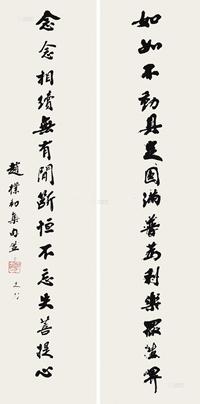 如如不動具足圓滿普為利樂眾生界
念念相續無有間斷恒不忘失菩提心
趙樸初集句并書